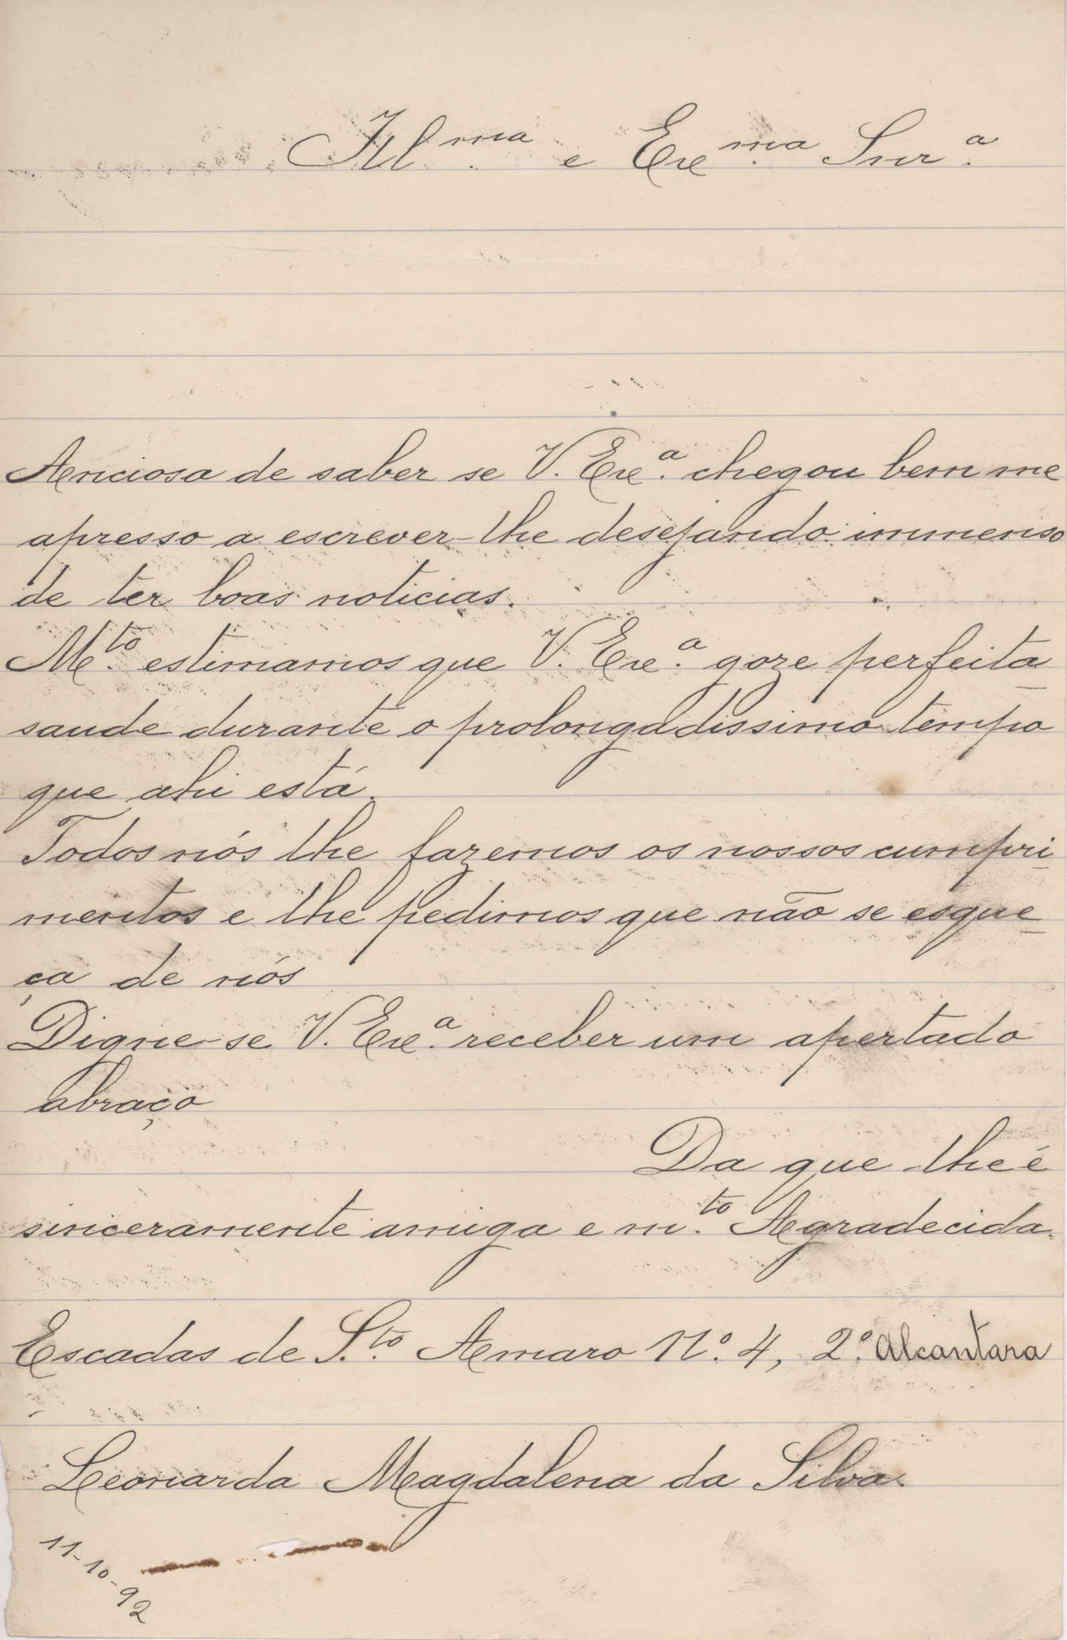 Ill.ma e Exe.ma Snr.a
Anciosa de saber se V. Exe.a chegou bem me
apresso a escrever-lhe desejando immenso
de ter boas noticias.
M.to estimamos que V. Exe.a goze perfeita
saude durante o prolongadissimo tempo
que ahi está.
Todos nós lhe fazemos os nossos cumpri-
mentos e lhe pedimos que não se esque-
ça de nós
Digne-se V. Exe.a receber um apertado
abraço
Da que lhe é
sinceramente amiga e m.to Agradecida.
Escadas de S.to Amaro N.º 4, 2.º Alcantara
Leonarda Magdalena da Silva.
11-10-92